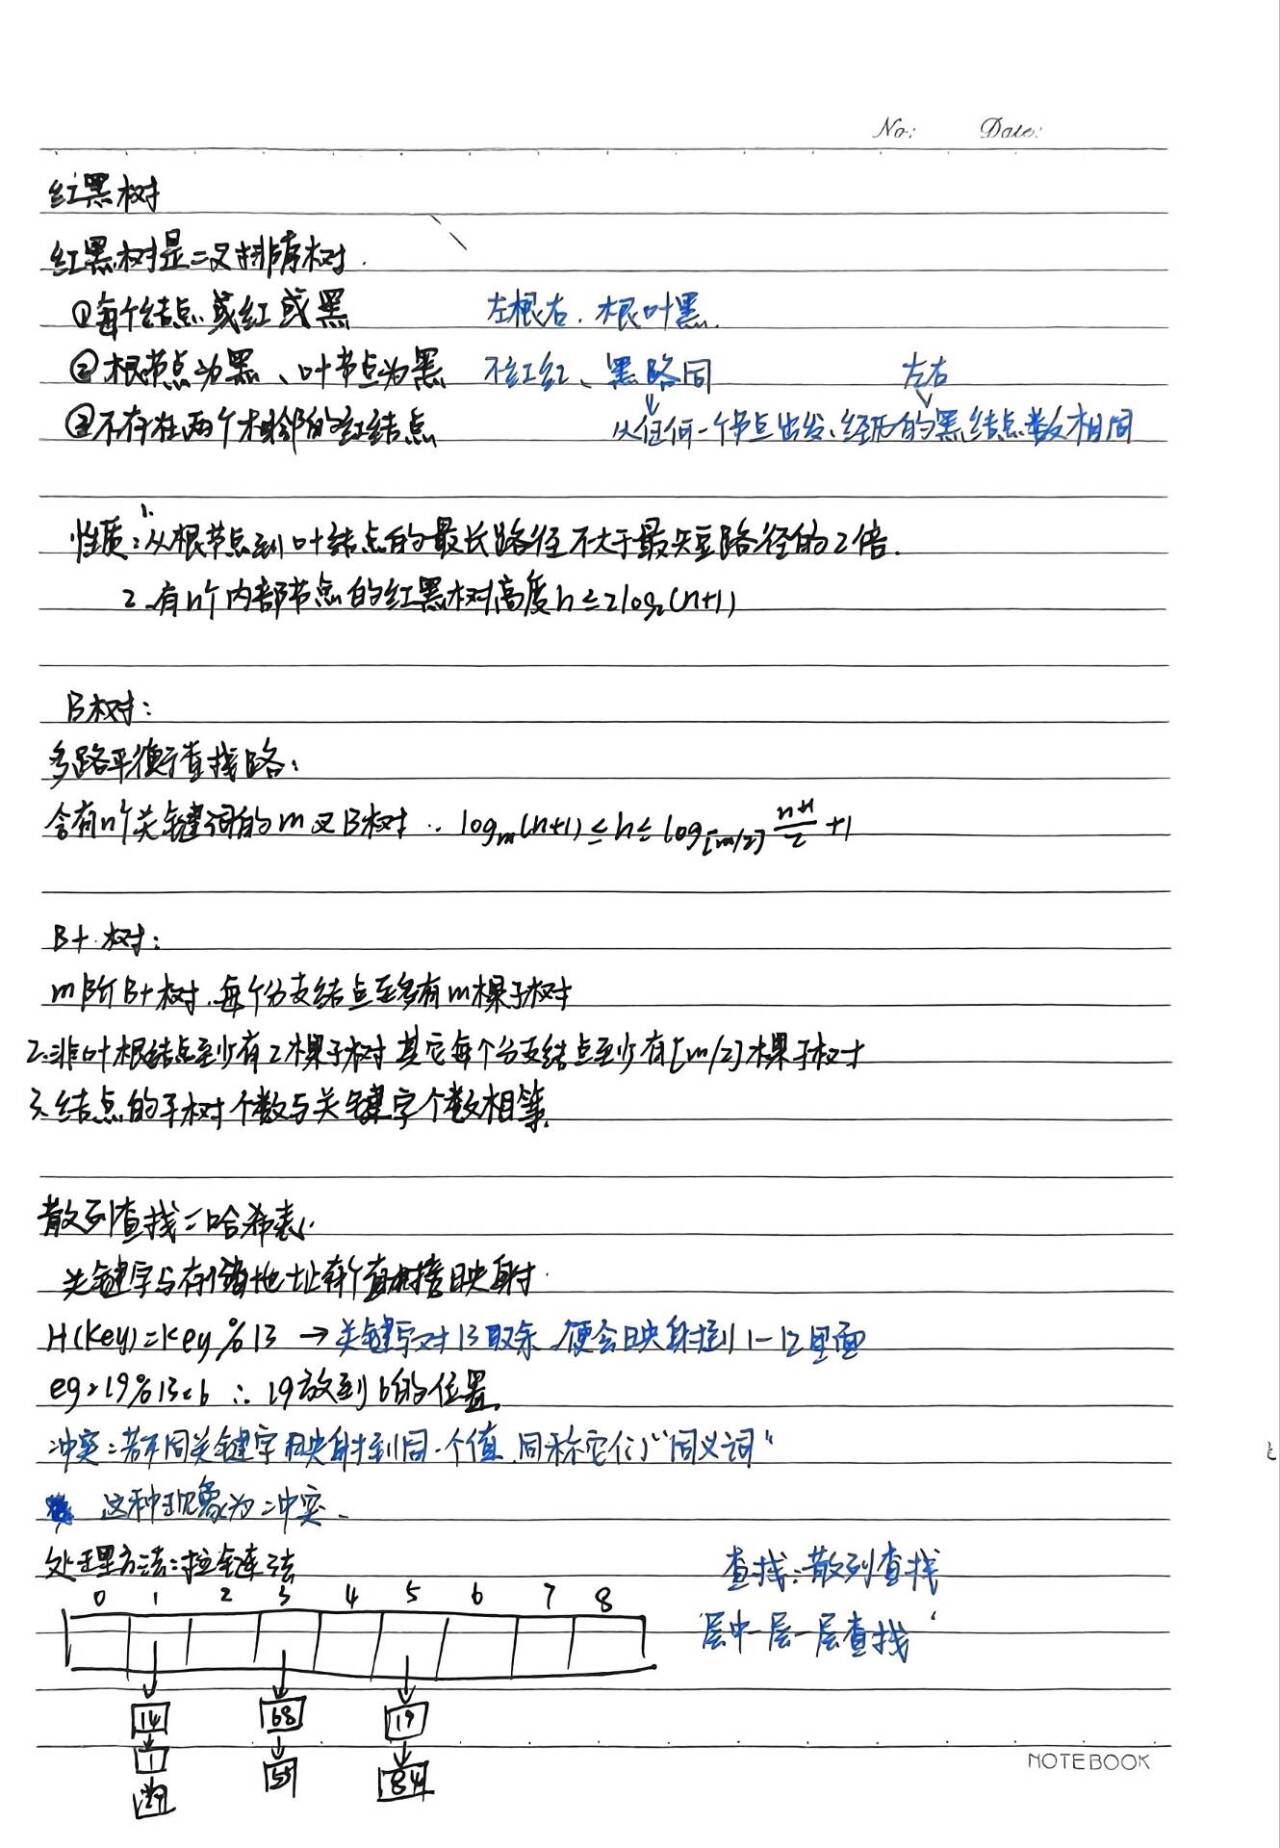 No: Date:
红黑树
红黑树是二叉排序树.
①每个结点或红或黑 左根右. 根叶黑.
②根节点为黑、叶节点为黑 不红红、黑路同 左右
③不存在两个相邻的红结点 从任何一个节点出发,经历的黑结点数相同
性质: 1. 从根节点到叶结点的最长路径不大于最短路径的2倍.
2.有n个内部节点的红黑树高度h≤2log₂(n+1)
B树:
多路平衡查找路:
含有n个关键词的m叉B树 ∴ logₘ(n+1)≤h≤log[m/2] (n+1)/2 +1
B+树:
m阶B+树.每个分支结点至多有m棵子树
2.非叶根结点至少有2棵子树 其它每个分支结点至少有[m/2]棵子树
3.结点的子树个数与关键字个数相等.
散列查找:哈希表.
关键字与存储地址有个直接映射.
H(Key)=key%13 →关键字对13取余 便会映射到1-12里面
eg:19%13=6 ∴19放到6的位置.
冲突:若不同关键字映射到同一个值,同称它们"同义词"
这种现象为冲突.
处理方法:拉链法 查找:散列查找
0 1 2 3 4 5 6 7 8
层中一层一层查找
14 68 19
1 55 84